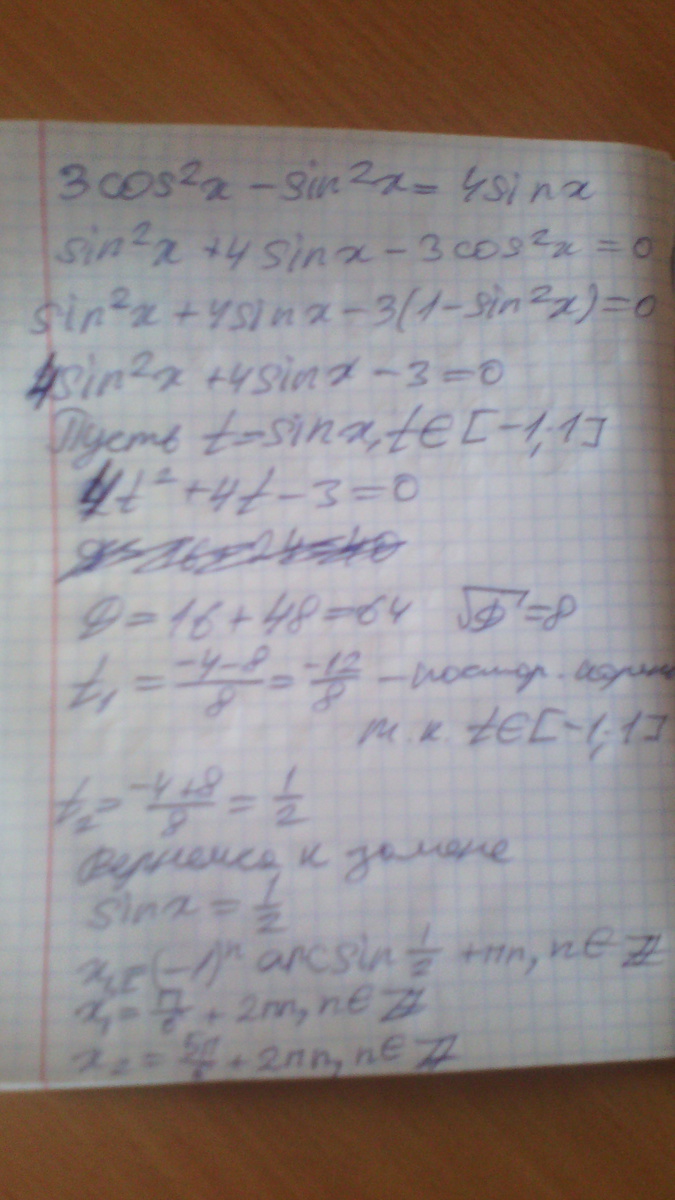 3cos²x - sin²x = 4sinx
sin²x + 4sinx - 3cos²x = 0
sin²x + 4sinx - 3(1 - sin²x) = 0
4sin²x + 4sinx - 3 = 0
Пусть t = sinx, t ∈ [-1; 1]
4t² + 4t - 3 = 0
D = 16 + 48 = 64 √D = 8
t₁ = (-4-8)/8 = -12/8 - постор. корень
т.к. t ∈ [-1; 1]
t₂ = (-4+8)/8 = 1/2
Вернемся к замене
sinx = 1/2
x = (-1)ⁿ arcsin 1/2 + πn, n ∈ Z
x₁ = π/6 + 2πn, n ∈ Z
x₂ = 5π/6 + 2πn, n ∈ Z